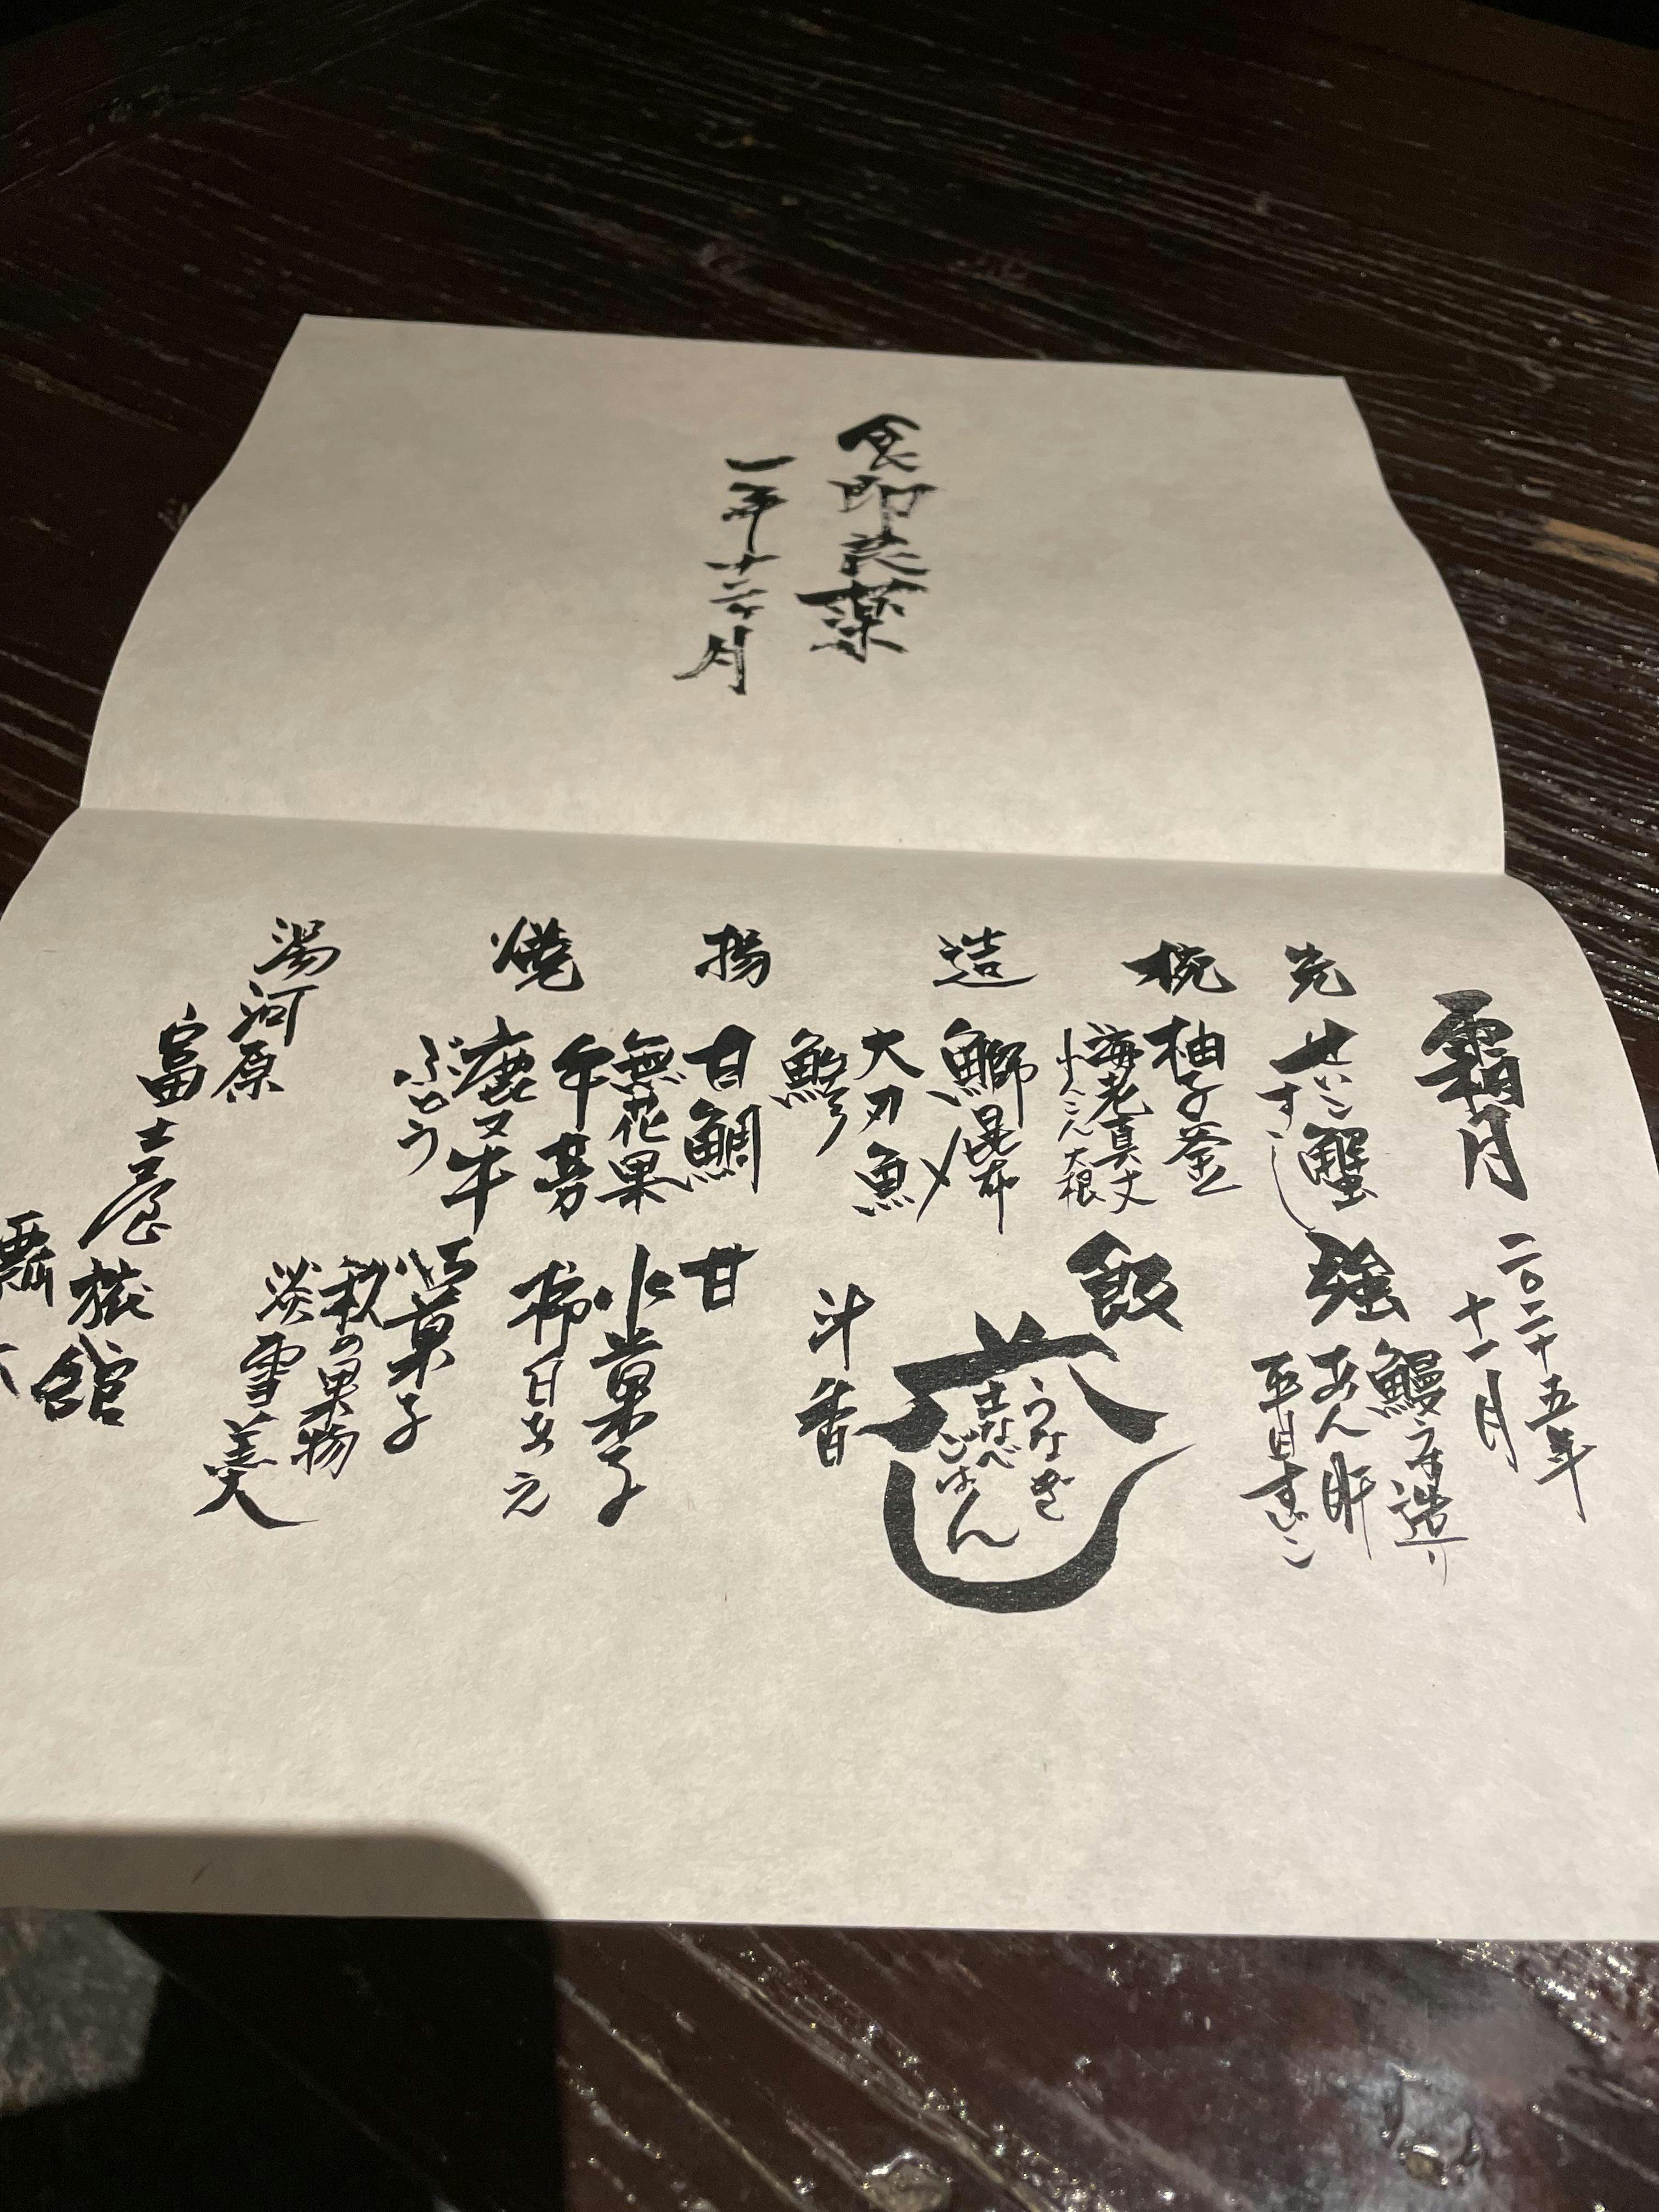 食即是薬
一年十二ヶ月
霜月
二〇二十五年
十一月
先
せいこ蟹
すし
椀
柚子釜
海老真丈
小んこん大根
造
鰤昆布〆
大刀魚
鯵
揚
甘鯛
無花果
牛蒡
焼
鹿又牛
ぶどう
強
鰻う造り
あん肝
平目すじこ
飯
うなぎ
土なべ
ごはん
斗香
甘
水菓子
柿白あえ
菓子
秋の果物
淡雪羹
湯河原
富士屋旅館
瓢